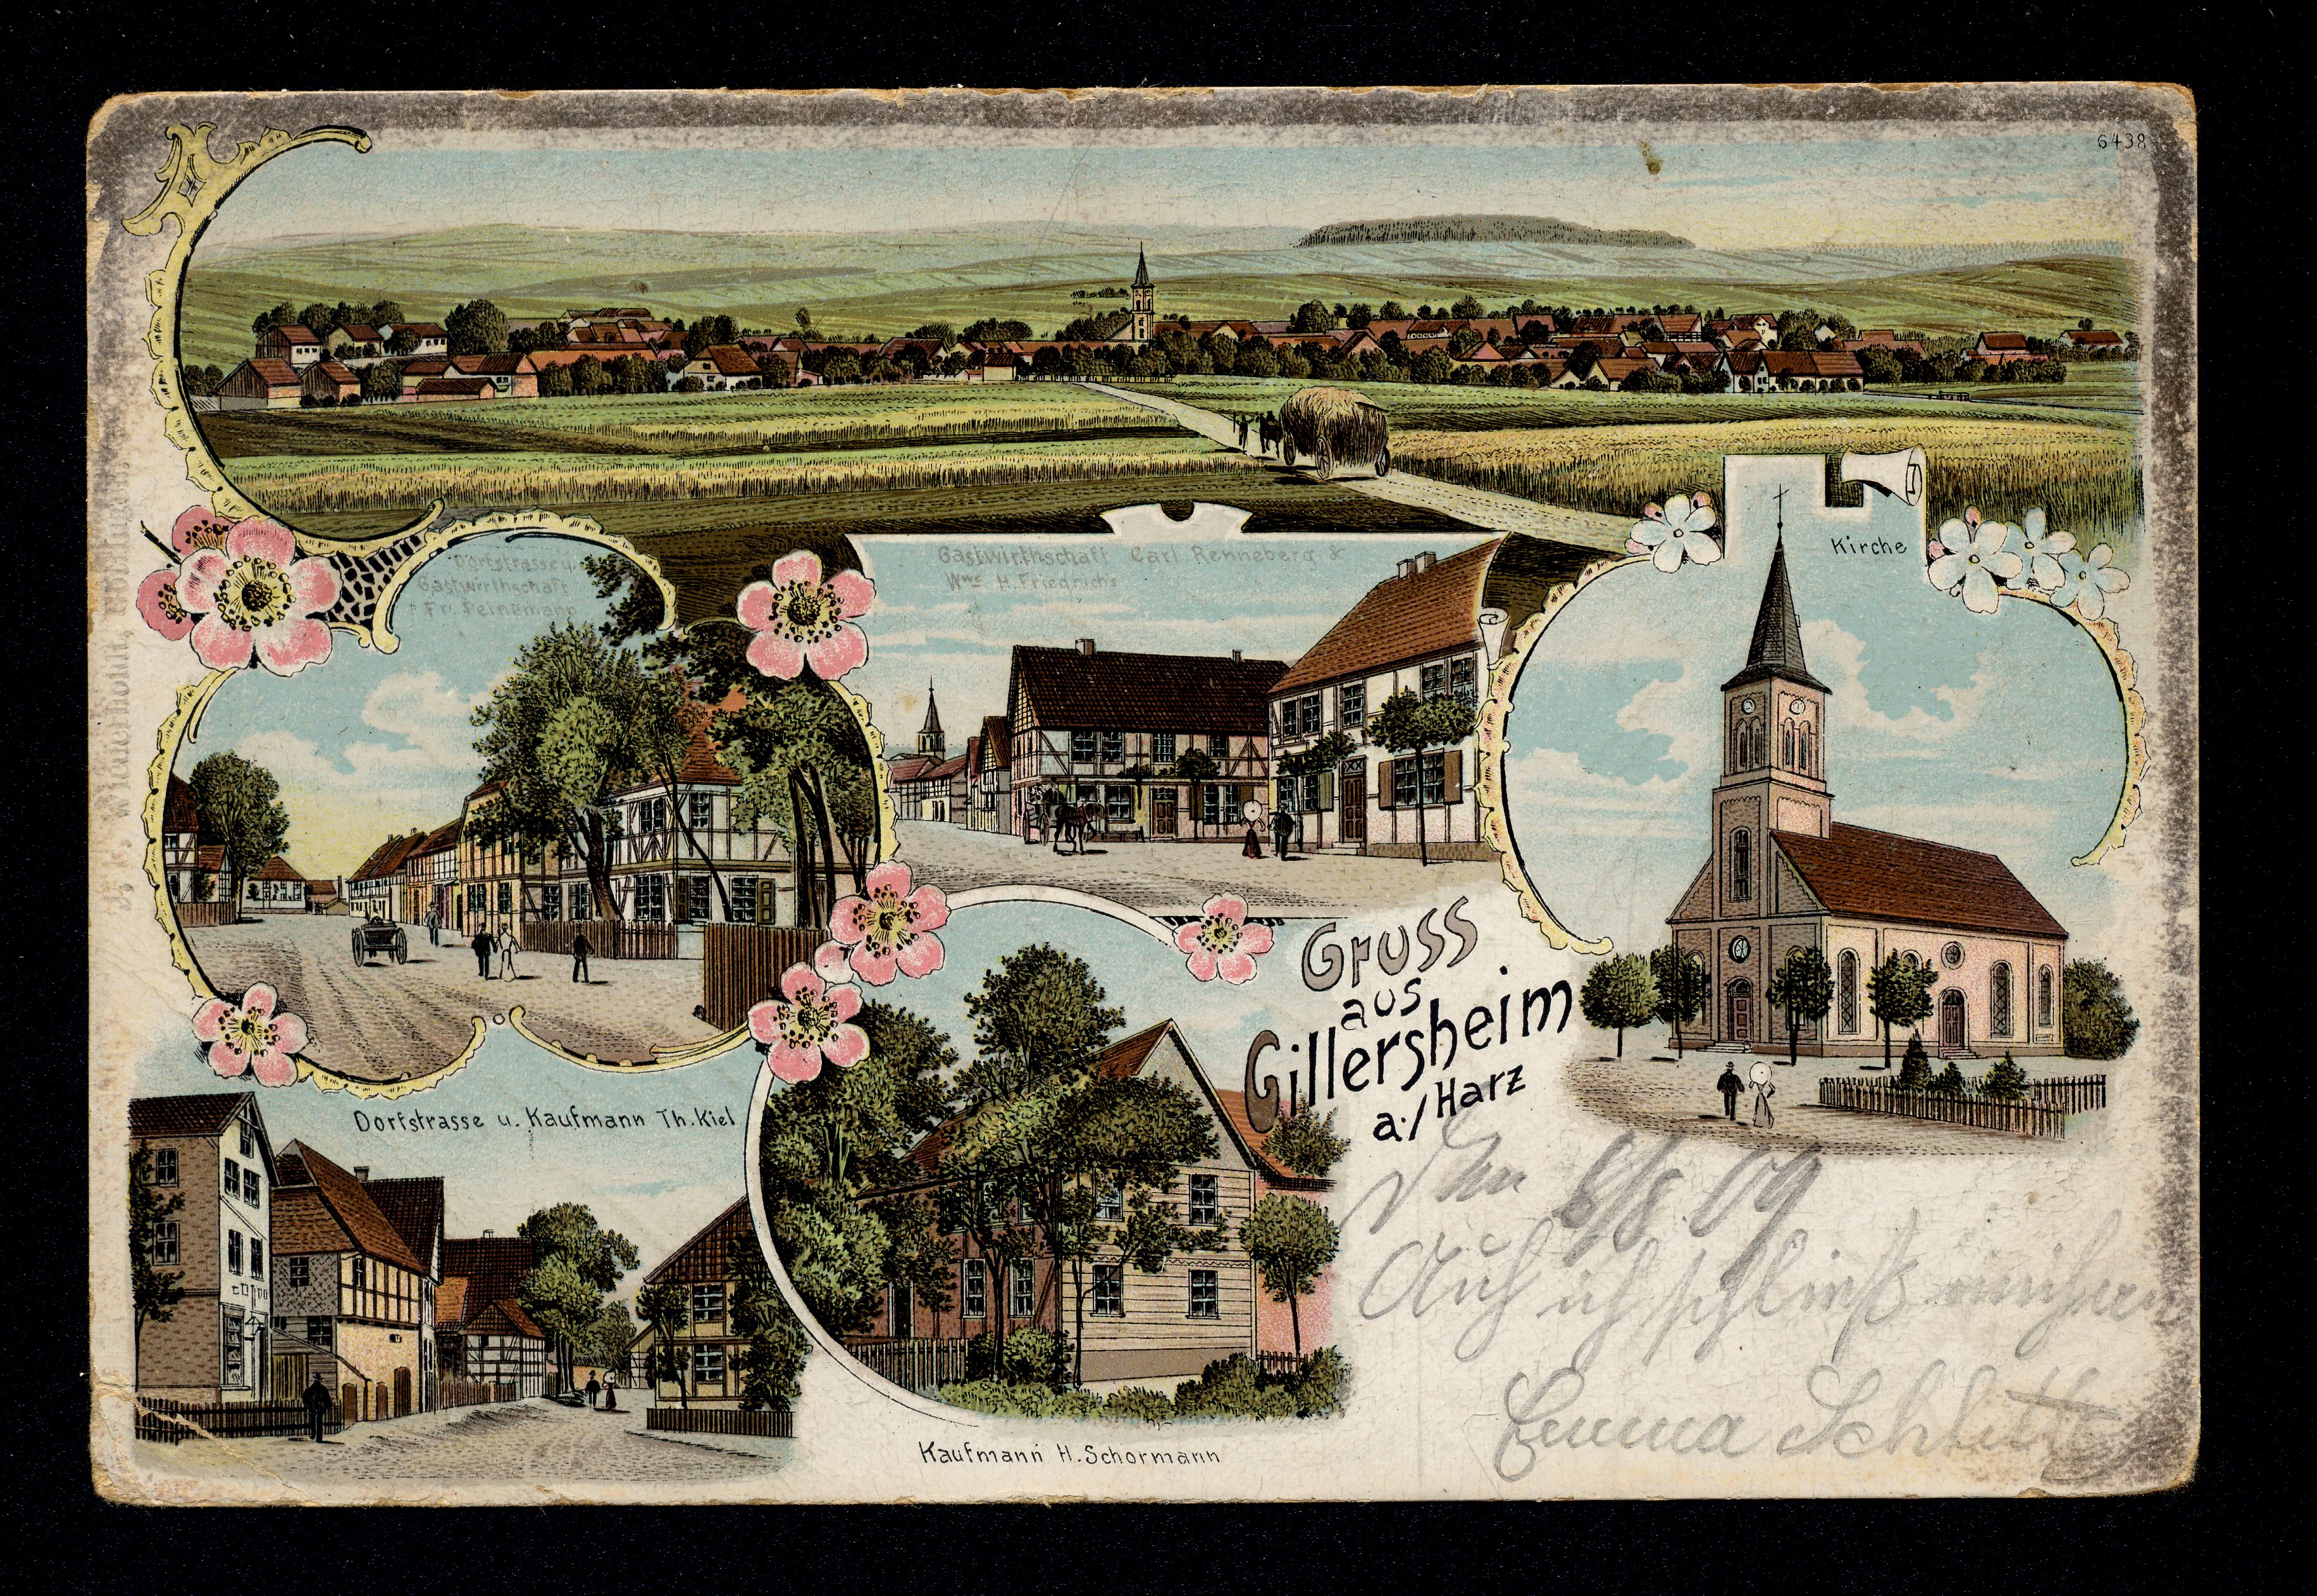 6438
Dorfstrasse u.
Gastwirthschaft
Fr. Peinemann
Gastwirthschaft Carl Renneberg &
Wwe H. Friedrichs
Kirche
Gruss
aus
Gillersheim
a./Harz
Dorfstrasse u. Kaufmann Th. Kiel
Kaufmann H. Schormann
Den 8/8. 09
Auch ich schließ
Emma